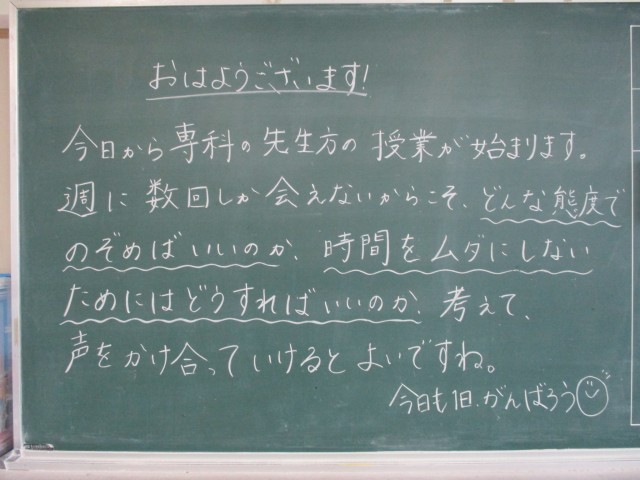 おはようございます!
今日から専科の先生方の授業が始まります。
週に数回しか会えないからこそ、どんな態度で
のぞめばいいのか、時間をムダにしない
ためにはどうすればいいのか、考えて、
声をかけ合っていけるとよいですね。
今日も1日、がんばろう